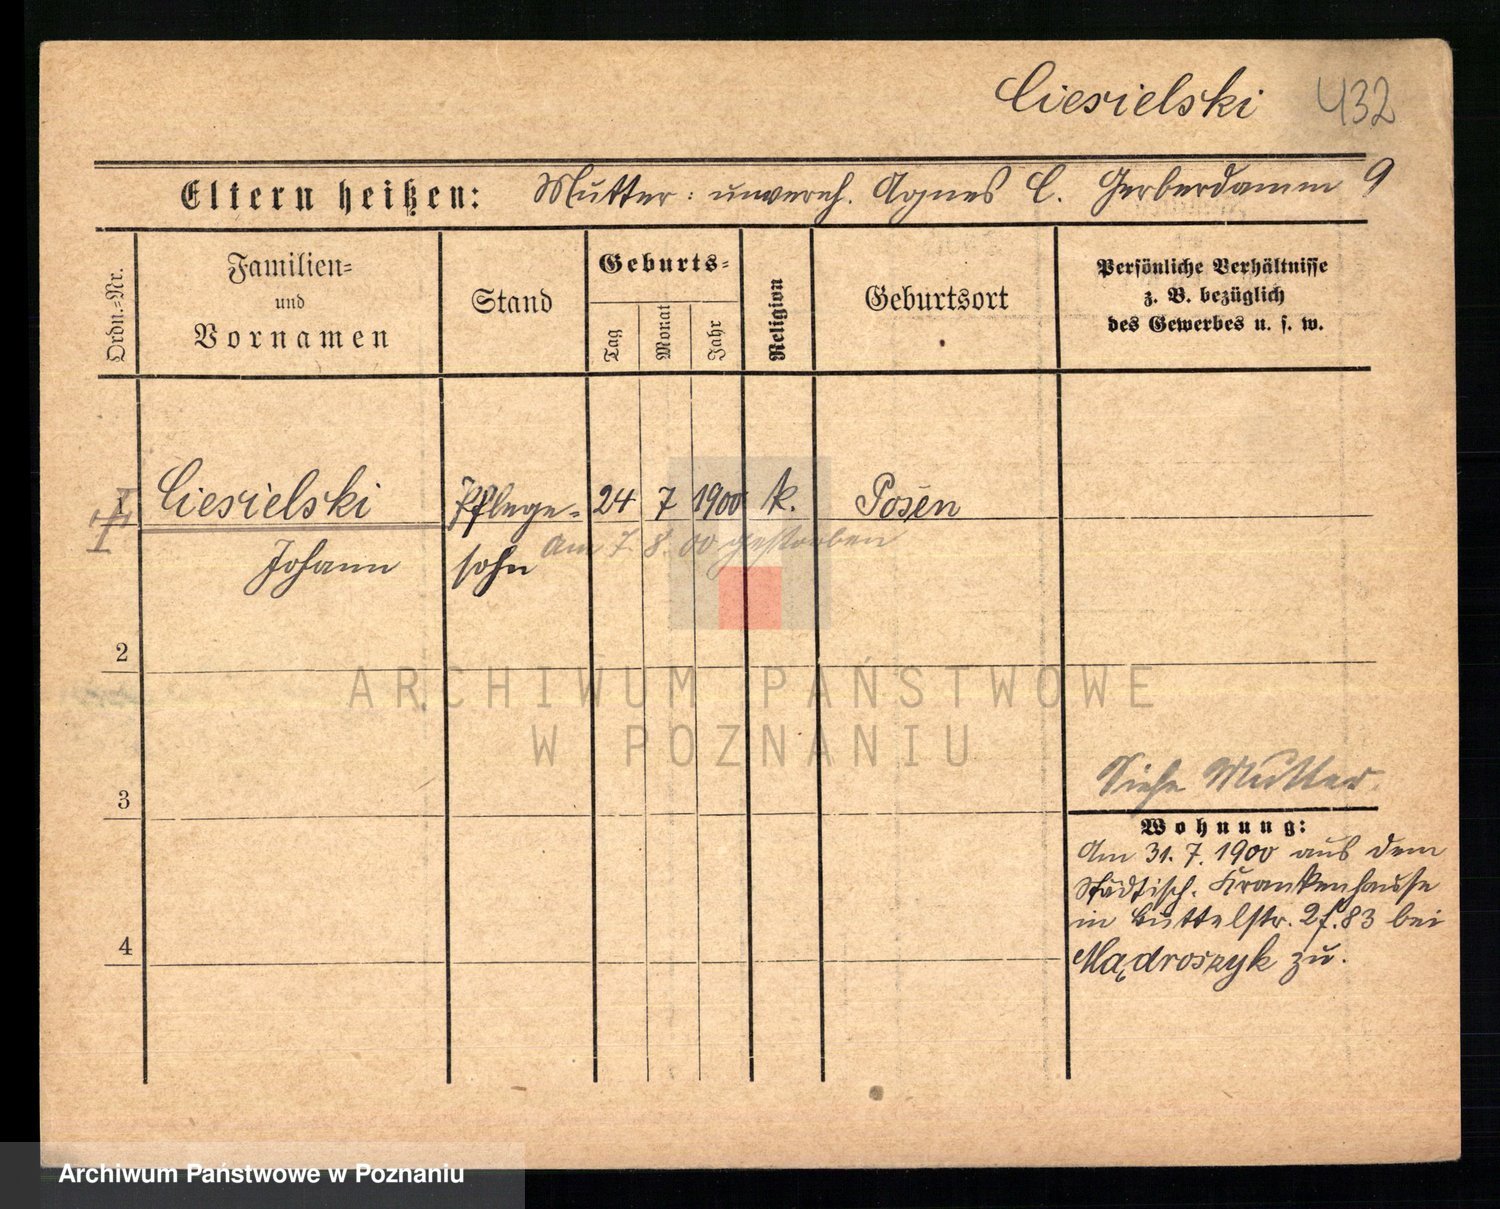 Ciesielski 432
Eltern heißen: Mutter: unvereh. Agnes C. Gerberdamm 9
Ordn.-Nr.
Familien-
und
Vornamen
Stand
Geburts-
Tag
Monat
Jahr
Religion
Geburtsort
Persönliche Verhältnisse
z. B. bezüglich
des Gewerbes u. s. w.
1 Ciesielski Pflege- 24 7 1900 k. Posen
Johann sohn am 7. 8. 00 gestorben
2
ARCHIWUM PAŃSTWOWE
W POZNANIU
3
Siehe Mutter.
Wohnung:
Am 31. 7. 1900 aus dem
Städtisch. Krankenhause
in Buttelstr. 83 bei
Mądroszyk zu.
4
Archiwum Państwowe w Poznaniu